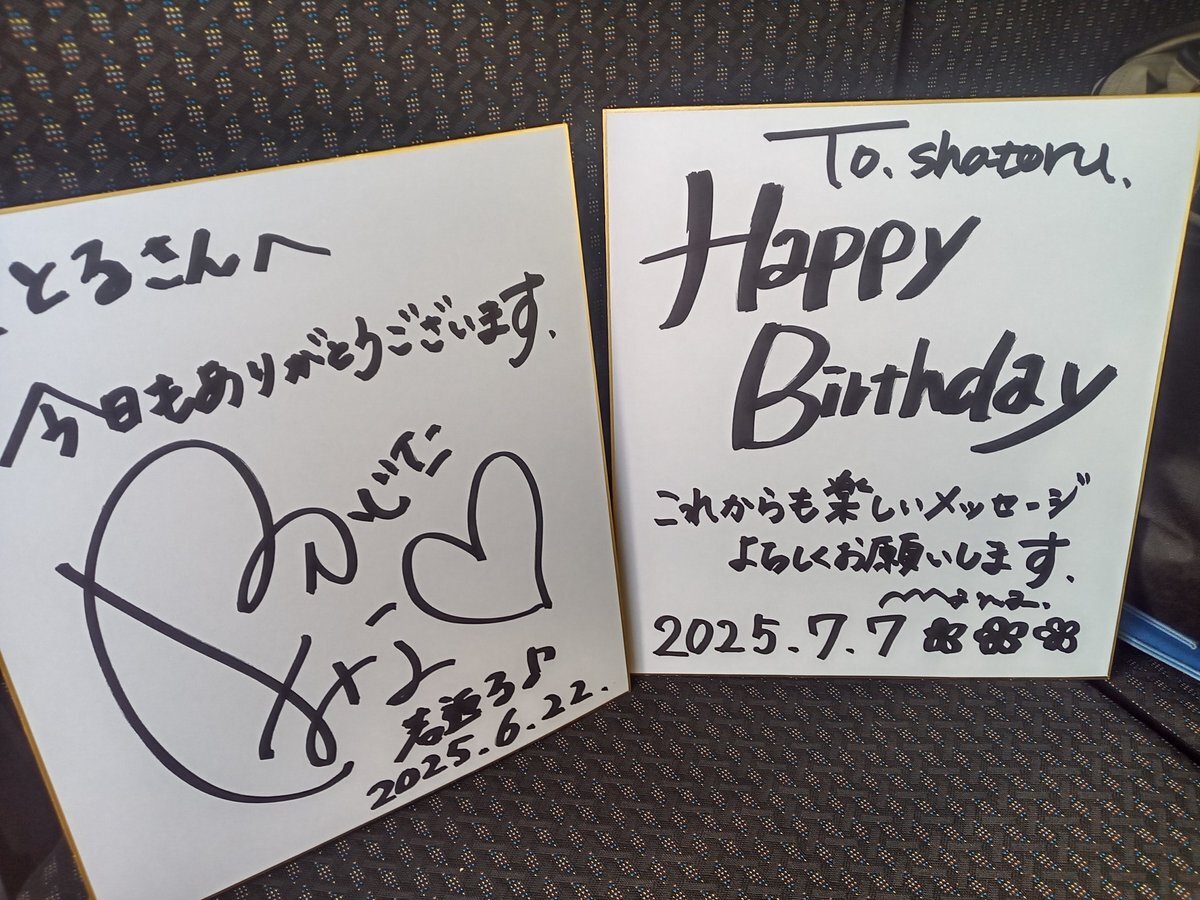 とるさんへ
今日もありがとうございます.
2025.6.22.
To. shatoru.
Happy
Birthday
これからも楽しいメッセージ
よろしくお願いします.
mana.
2025.7.7